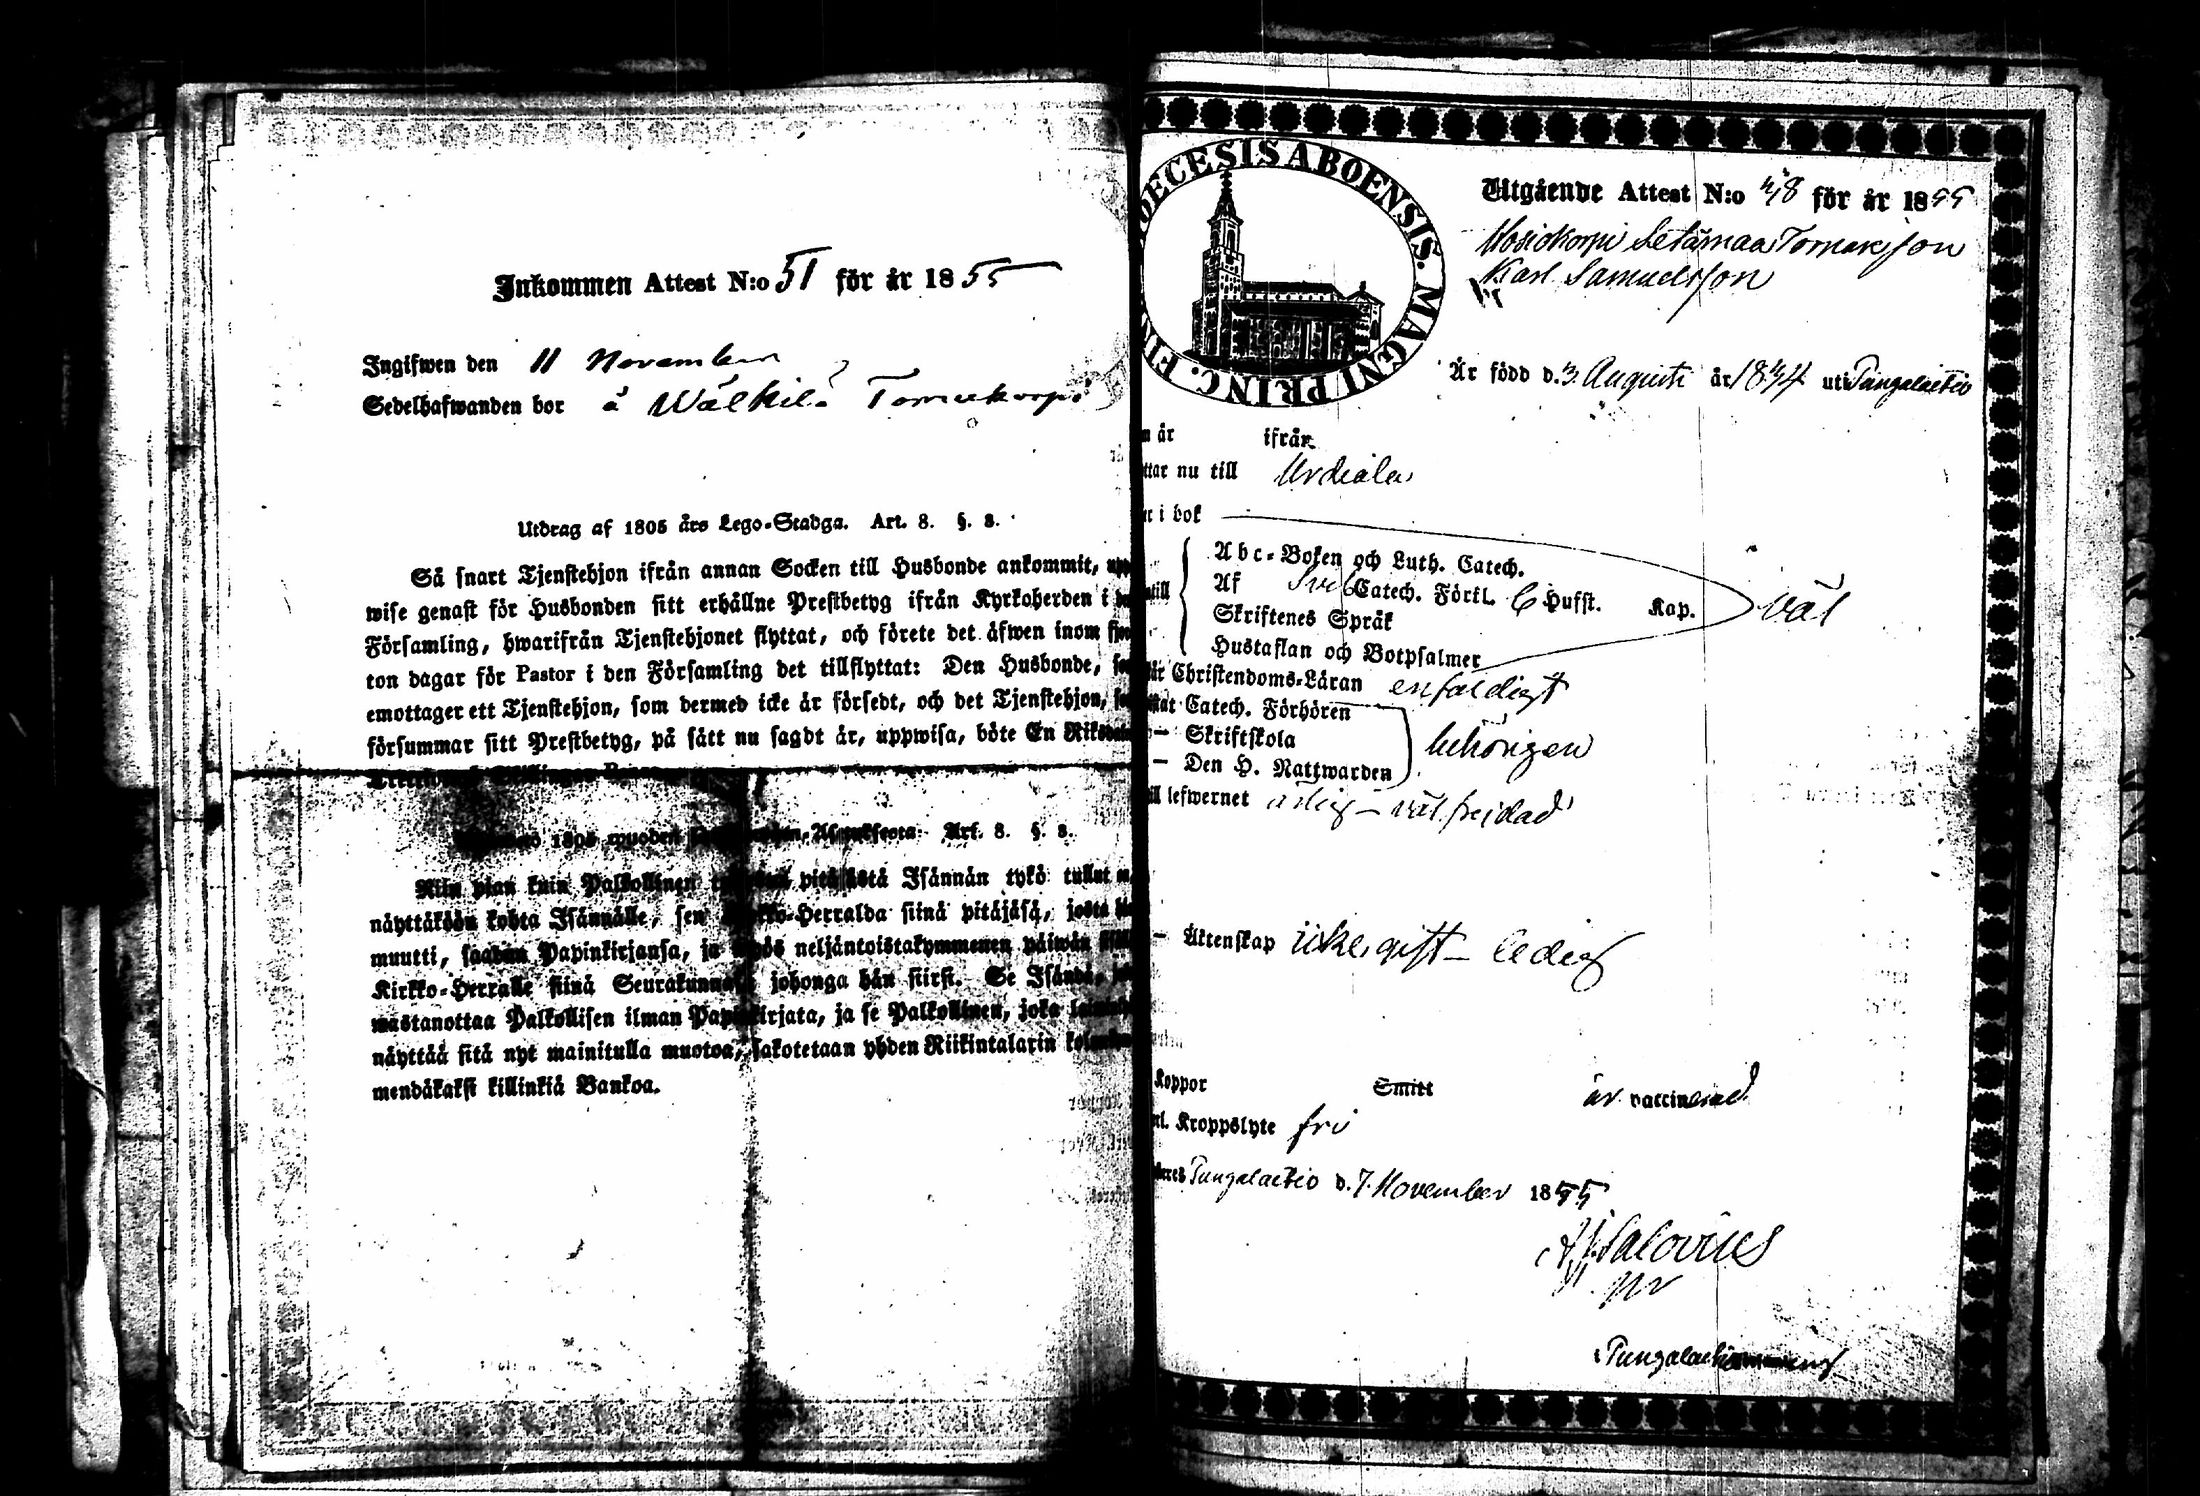 Inkommen Attest N:o 51 för år 1855
Ingifwen den 11 November
Sedelhafwanden bor å Wälkilä Tomukorpi
Utdrag af 1805 års Lego-Stadga. Art. 8. §. 8.
Så snart Tjenstehjon ifrån annan Socken till Husbonde ankommit,
wise genast för Husbonden sitt erhållne Prestbetyg ifrån Kyrkoherden i
Församling, hwarifrån Tjenstehjonet flyttat, och förete det äfwen inom
ton dagar för Pastor i den Församling det tillflyttat: Den Husbonde,
emottager ett Tjenstehjon, som dermed icke är försedt, och det Tjenstehjon,
försummar sitt Prestbetyg, på sätt nu sagdt är, uppwisa, böte En
1805 wuoden Art. 8. §. 8.
Niin pian kuin Palkollinen pitäjästä Isännän tykö tullut
näyttäköön kohta Isännälle, sen Kirkko-Herralda siinä pitäjäsä, josta
muutti, saadun Papinkirjansa, ja myös neljäntoistakymmenen päiwän
Kirkko-Herralle siinä Seurakunnasa johonga hän siirsi. Se Isändä,
wastanottaa Palkollisen ilman Papinkirjata, ja se Palkollinen, joka
näyttää sitä nyt mainitulla muotoa, sakotetaan yhden Riikintalarin
mendäkaksi killinkiä Bankoa.
OECESIS ABOENSIS. MAGNI PRINC. FIN
Utgående Attest N:o 48 för år 1855
Karl Samuelsson
Är född d. 3 Augusti år 1834 uti Pungalaitio
n år ifrån
ttar nu till Urdiala
i bok
Abc-Boken och Luth. Catech.
Af Sveb Catech. Förkl. 6 Hufst. Kap. väl
Skriftenes Språk
Hustaflan och Botpsalmer
Christendoms-Läran enfaldigt
Catech. Förhören
— Skriftskola behörigen
— Den H. Nattwarden
ill lefwernet ärlig — väl frejdad
— Äktenskap icke gift — ledig
Koppor Smitt är vaccinerad
Kroppslyte fri
Pungalaitio d. 7. November 1855
Salovius